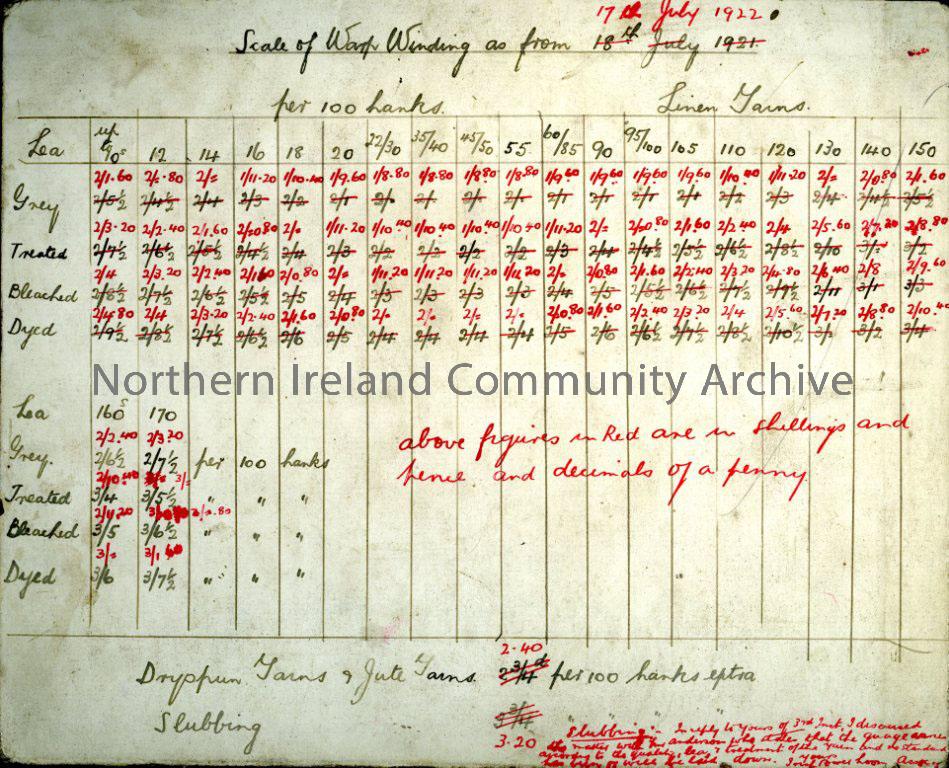 17th July 1922.
Scale of Warp Winding as from 18th July 1921.
per 100 hanks. Linen Yarns.
Lea up to 90s 12 14 16 18 20 22/30 35/40 45/50 55 60/85 90 95/100 105 110 120 130 140 150
2/1.60 2/-.80 2/= 1/11.20 1/10.40 1/9.60 1/8.80 1/8.80 1/8.80 1/8.80 1/9.60 1/9.60 1/9.60 1/9.60 1/10.40 1/11.20 2/= 2/0.80 2/1.60
Grey 2/5½ 2/4½ 2/4 2/3 2/2 2/1 2/- 2/- 2/1 2/1 2/1 2/3 2/4 2/4½ 2/5½
2/3.20 2/2.40 2/1.60 2/0.80 2/= 1/11.20 1/10.40 1/10.40 1/10.40 1/10.40 1/11.20 2/= 2/0.80 2/1.60 2/2.40 2/4 2/5.60 2/7.20 2/8.80
Treated 2/7½ 2/6½ 2/5½ 2/4½ 2/4 2/3 2/2 2/2 2/2 2/2 2/3 2/4 2/4½ 2/5½ 2/6½ 2/8½ 2/10 3/2
2/4 2/3.20 2/2.40 2/1.60 2/0.80 2/= 1/11.20 1/11.20 1/11.20 1/11.20 2/= 2/0.80 2/1.60 2/2.40 2/3.20 2/4.80 2/6.40 2/8 2/9.60
Bleached 2/8½ 2/7½ 2/6½ 2/5½ 2/5 2/4 2/3 2/3 2/3 2/3 2/4 2/5 2/5½ 2/6½ 2/7½ 2/9½ 2/11 3/1 3/3
2/4.80 2/4 2/3.20 2/2.40 2/1.60 2/0.80 2/= 2/= 2/= 2/= 2/0.80 2/1.60 2/2.40 2/3.20 2/4 2/5.60 2/7.20 2/8.80 2/10.40
Dyed 2/9½ 2/8½ 2/7½ 2/6½ 2/6 2/5 2/4 2/4 2/4 2/4 2/5 2/6 2/6½ 2/7½ 2/8½ 2/10½ 3/- 3/2 3/4
Northern Ireland Community Archive
Lea 160s 170
2/2.40 2/3.20
Grey. 2/6½ 2/7½ per 100 hanks
2/10.40 3/=
Treated 3/4 3/5½ " " "
2/11.20 3/0.80
Bleached 3/5 3/6½ " " "
3/= 3/1.60
Dyed 3/6 3/7½ " " "
above figures in Red are in shillings and
pence and decimals of a penny.
2.40
Dryspun Yarns & Jute Yarns. 2¾d per 100 hanks extra
Slubbing
3.20
Slubbing:- In reply to yours of 3rd Inst. I discussed
the matter with Mr Anderson who states that the
according to the quality, lea, & treatment of the Yarn and no standard
has been or will be laid down.